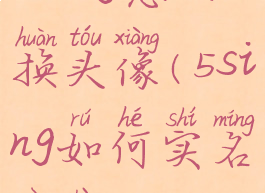 huàn tóu xiàng
换头像(5si
rú hé shí míng
ng如何实名